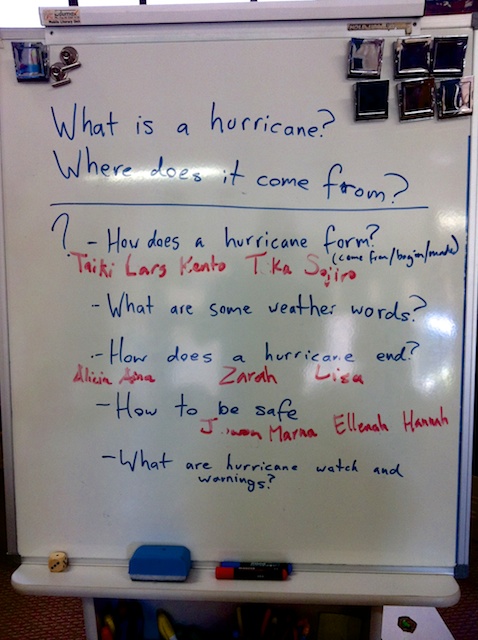 What is a hurricane?
Where does it come from?
? - How does a hurricane form?
(come from/begin/made)
Taiki Lars Kento Tika Sojiro
- What are some weather words?
- How does a hurricane end?
Alicia Zarah Lisa
- How to be safe
Marna Ellenah Hannah
- What are hurricane watch and
warnings?